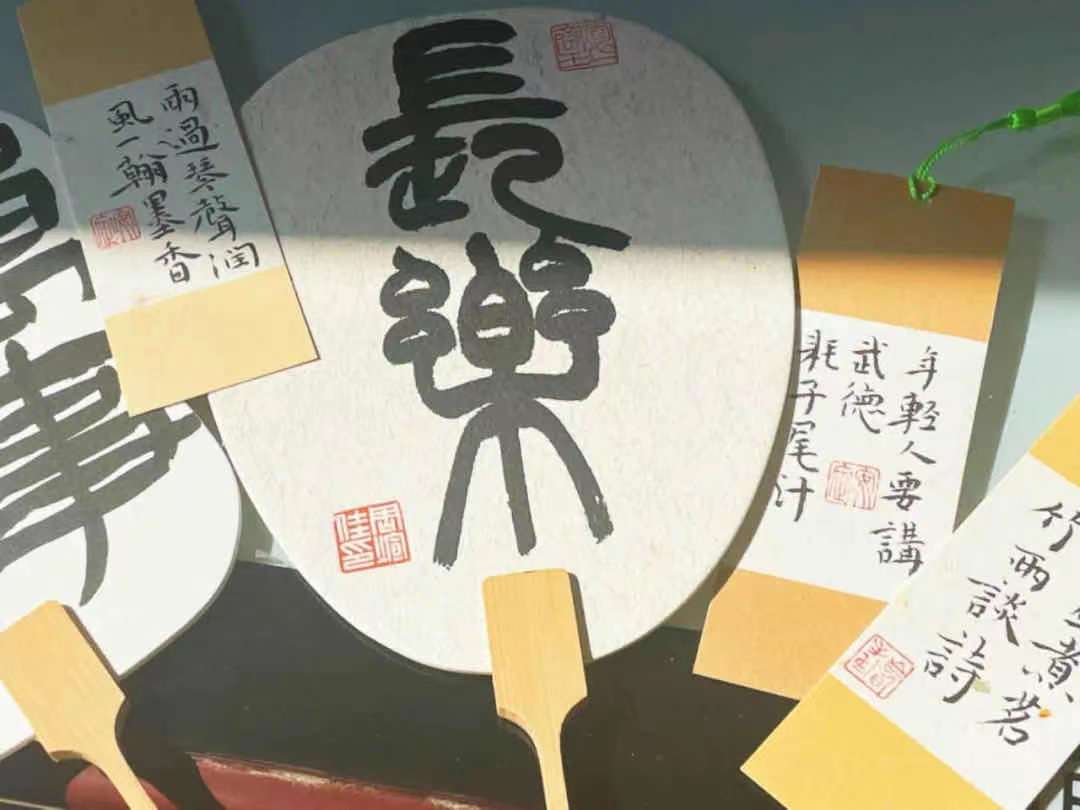 事
雨過琴聲潤
風一翰墨香
長樂
年輕人要講
武德
耗子尾汁
煮茗
竹雨談詩